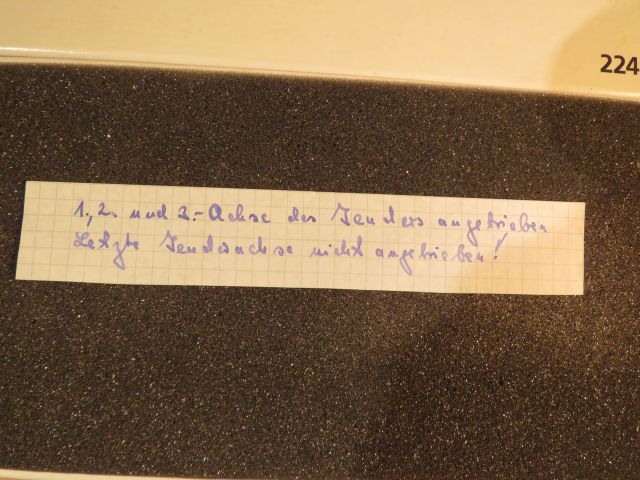 224
1., 2. und 3.-Achse des Tenders angetrieben
Letzte Tenderachse nicht angetrieben!